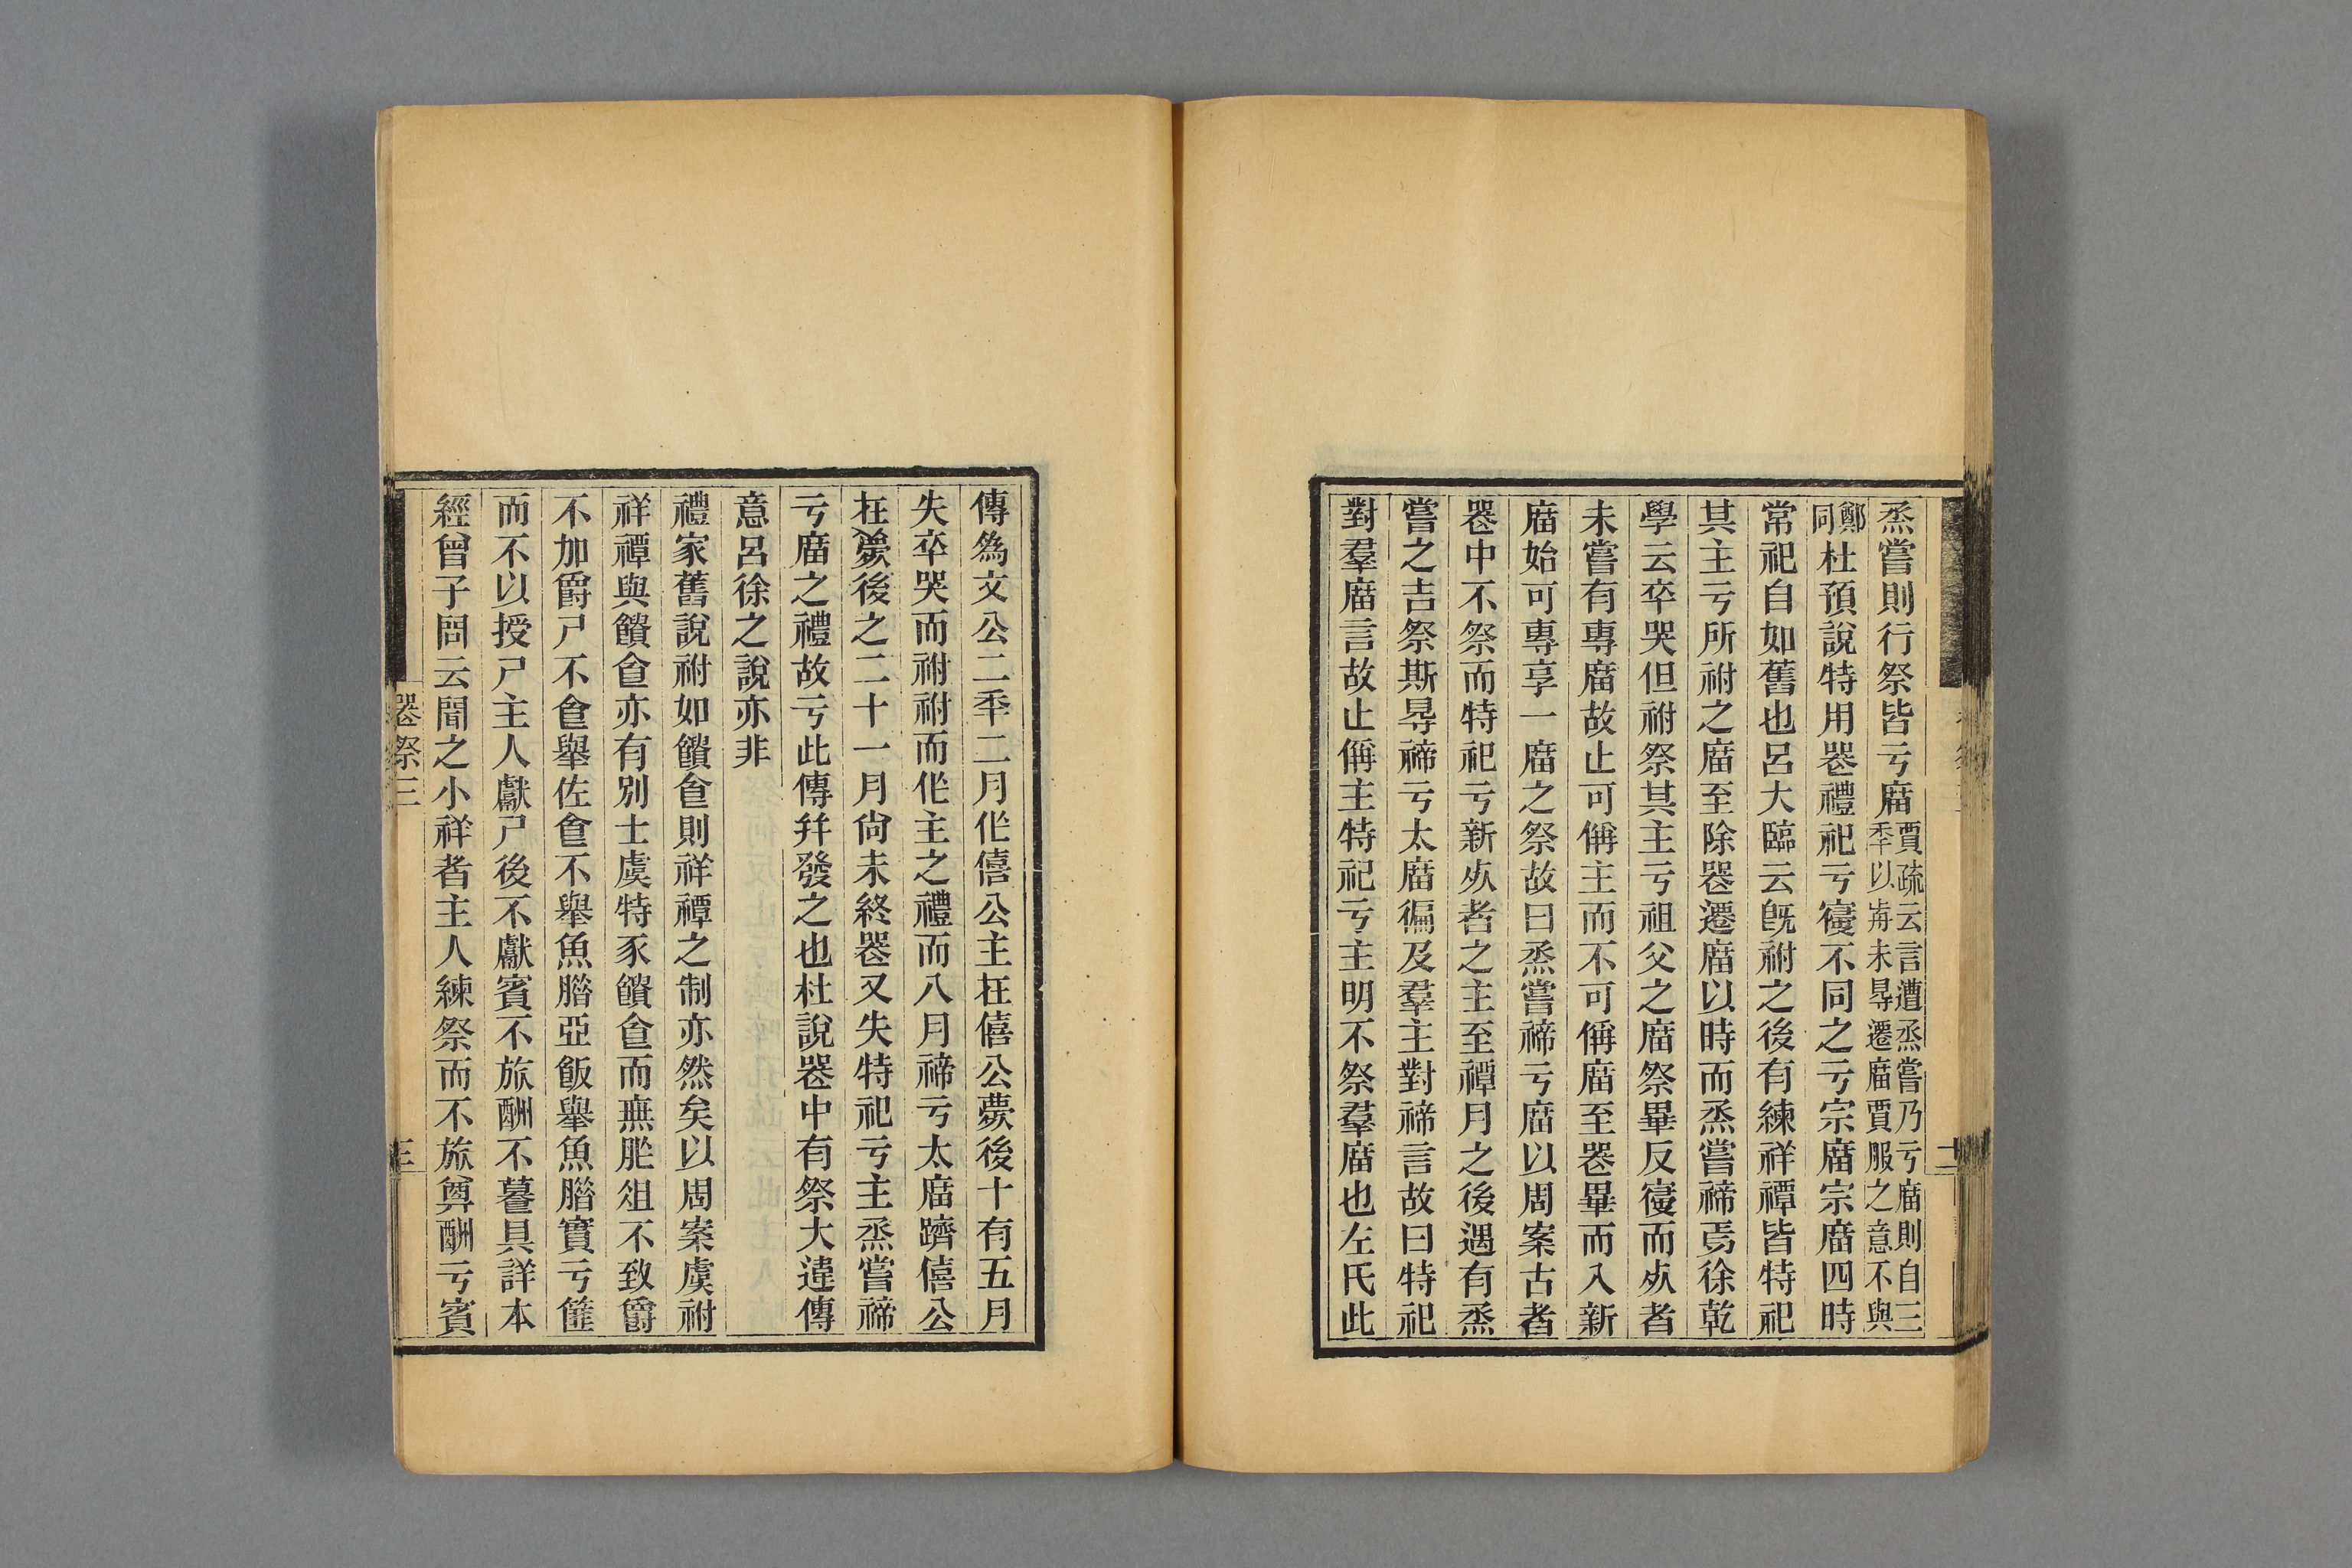 烝嘗則行祭皆亏廟賈疏云言遭烝嘗乃亏廟則自三秊以歬未㝵遷廟賈服之意不與
鄭同杜預說特用喪禮祀亏寢不同之亏宗廟宗廟四時
常祀自如舊也呂大臨云旣祔之後有練祥禫皆特祀
其主亏所祔之廟至除喪遷廟以時而烝嘗禘焉徐乾
學云卒哭但祔祭其主亏祖父之廟祭畢反寢而𣦸者
未嘗有專廟故止可偁主而不可偁廟至喪畢而入新
廟始可專享一廟之祭故曰烝嘗禘亏廟以周案古者
喪中不祭而特祀亏新𣦸者之主至禫月之後遇有烝
嘗之吉祭斯㝵禘亏太廟徧及羣主對禘言故曰特祀
對羣廟言故止偁主特祀亏主明不祭羣廟也左氏此
二
傳爲文公二秊二月作僖公主在僖公薨後十有五月
失卒哭而祔祔而作主之禮而八月禘亏太廟躋僖公
在薨後之二十一月尙未終喪又失特祀亏主烝嘗禘
亏廟之禮故亏此傳幷發之也杜說喪中有祭大違傳
意呂徐之說亦非
禮家舊說祔如饋食則祥禫之制亦然矣以周案虞祔
祥禫與饋食亦有別士虞特豕饋食而無肵俎不致爵
不加爵尸不食舉佐食不舉魚腊亞飯舉魚腊實亏篚
而不以授尸主人獻尸後不獻賓不旅酬不䕻具詳本
經曾子問云聞之小祥者主人練祭而不旅奠酬亏賓
喪祭三
三